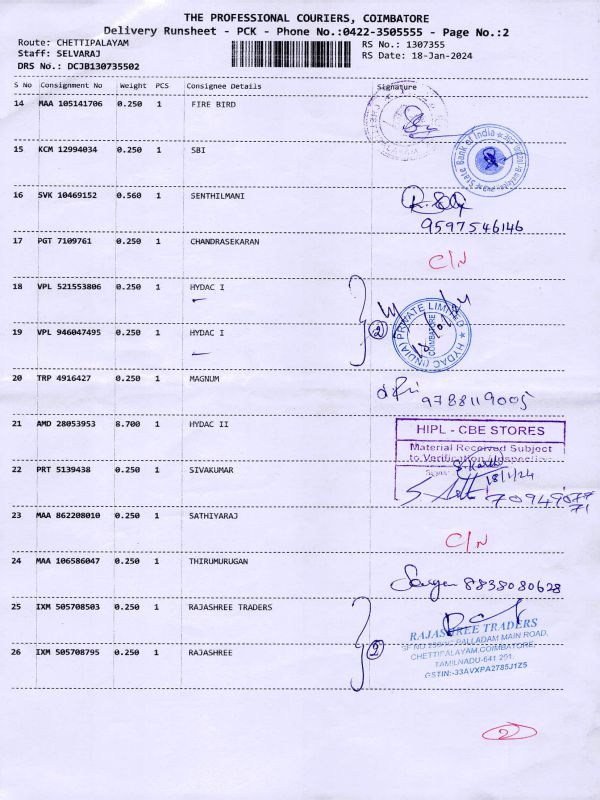 THE PROFESSIONAL COURIERS, COIMBATORE
Delivery Runsheet - PCK - Phone No.:0422-3505555 - Page No.:2
Route: CHETTIPALAYAM
RS No.: 1307355
Staff: SELVARAJ
RS Date: 18-Jan-2024
DRS No.: DCJB130735502
S No Consignment No Weight PCS Consignee Details Signature
14 MAA 105141706 0.250 1 FIRE BIRD
15 KCM 12994034 0.250 1 SBI
State Bank of India
16 SVK 10469152 0.560 1 SENTHILMANI
9597546146
17 PGT 7109761 0.250 1 CHANDRASEKARAN
C/N
18 VPL 521553806 0.250 1 HYDAC I
19 VPL 946047495 0.250 1 HYDAC I
2
HYDAC (INDIA) PRIVATE LIMITED
COIMBATORE
20 TRP 4916427 0.250 1 MAGNUM
9788119005
21 AMD 28053953 8.700 1 HYDAC II
HIPL - CBE STORES
Material Received Subject
to Verification / Inspection
18/1/24
22 PRT 5139438 0.250 1 SIVAKUMAR
23 MAA 862208010 0.250 1 SATHIYARAJ
C/N
24 MAA 106586047 0.250 1 THIRUMURUGAN
8838080628
25 IXM 505708503 0.250 1 RAJASHREE TRADERS
26 IXM 505708795 0.250 1 RAJASHREE
2
RAJASHREE TRADERS
PALLADAM MAIN ROAD,
CHETTIPALAYAM, COIMBATORE,
TAMILNADU-641 201.
GSTIN:-33AVXPA2785J1Z5
2